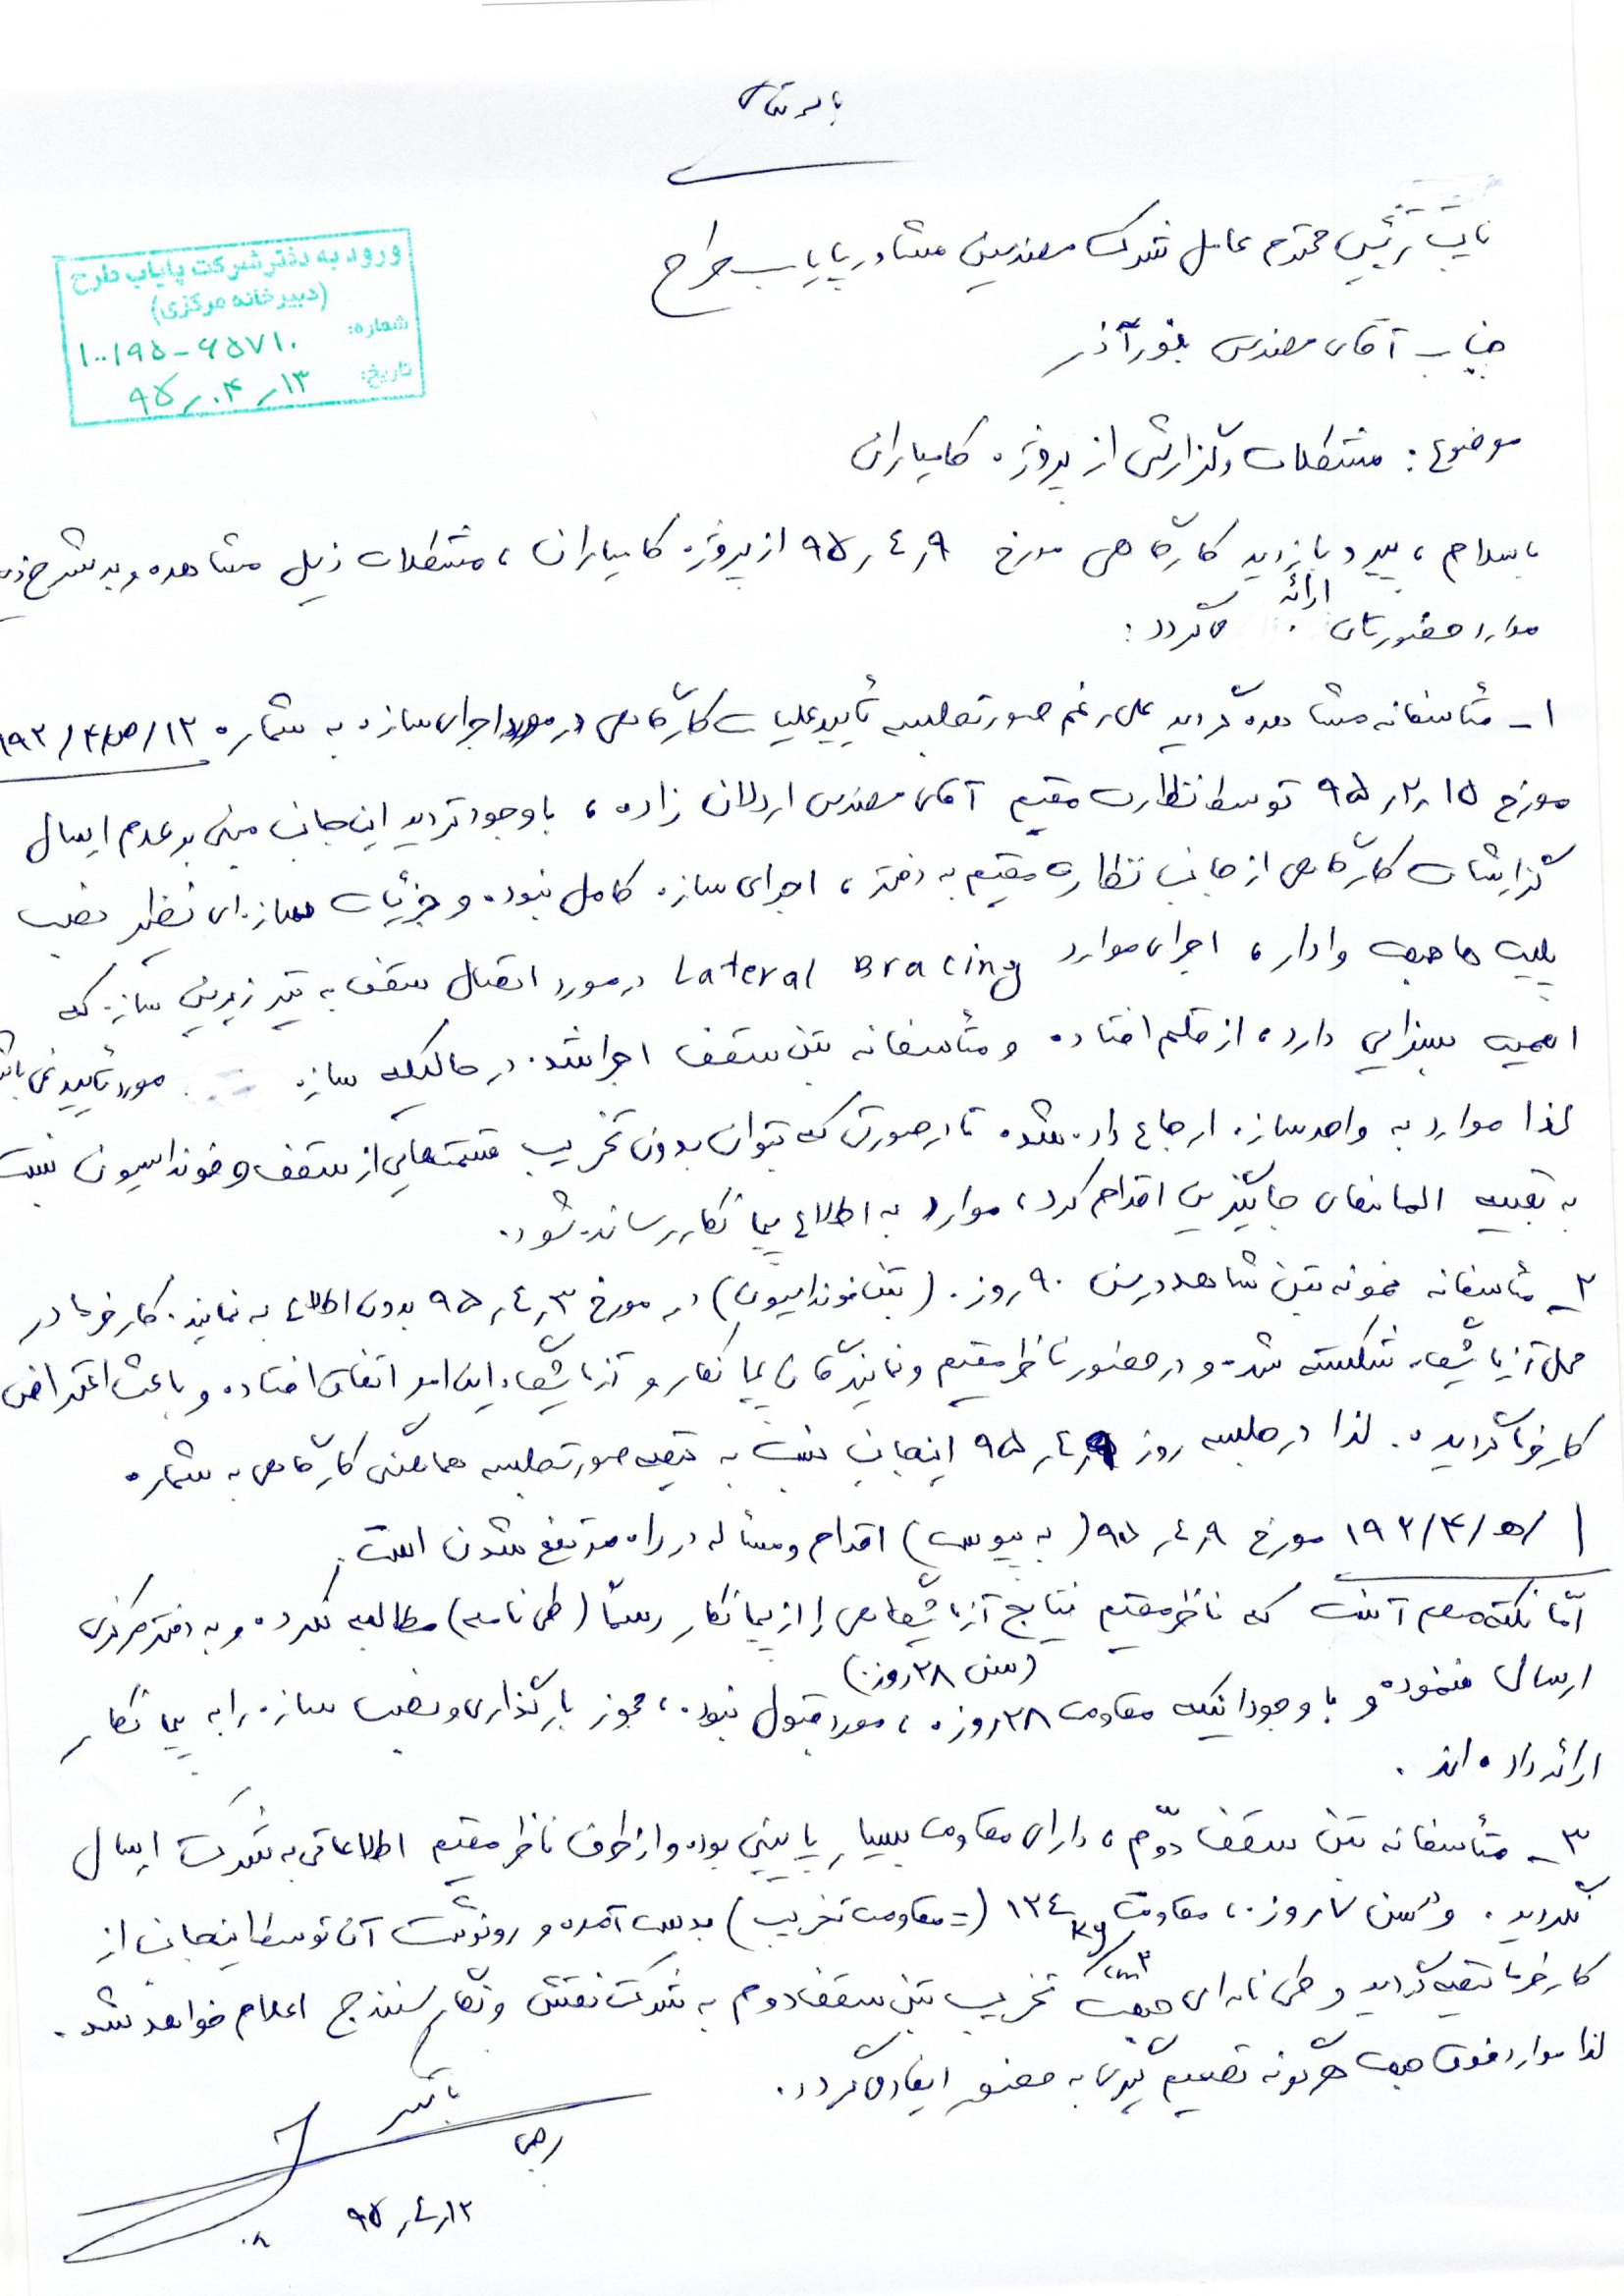 باسمه تعالی
نایب رئیس محترم عامل شرکت مهندسین مشاور پایاب طرح
ورود به دفتر شرکت پایاب طرح
(دبیرخانه مرکزی)
شماره: ۱۰۰۱۹۵-۶۵۷۱۰
تاریخ: ۱۳ر۰۴ر۹۵
جناب آقای مهندس
موضوع: مشکلات و گزارش از پروژه کامیاران
باسلام، پیرو بازدید کارگاهی مورخ ۹ر٤ر۹۵ از پروژه کامیاران، مشکلات ذیل مشاهده و به شرح ذیل
موارد حضورتان ارائه می‌گردد:
۱- متأسفانه مشاهده گردید علی رغم صورتجلسه تأیید عملیات کارگاهی در مورد اجرای سازه به شماره ۱۹۲/۴/ص/۱۲
مورخ ۱۵ر۲ر۹۵ توسط نظارت مقیم آقای مهندس اردلان زاده، با وجود تردید این جانب مبنی بر عدم ارسال
گزارشات کارگاهی از جانب نظارت مقیم به دفتر، اجرای سازه کامل نبوده و جزئیات سازه‌ای نظیر نصب
پلیت ها جهت وادار، اجرای موارد Lateral Bracing در مورد اتصال سقف به تیر زیرین سازه که
اهمیت بسزایی دارد، از قلم افتاده و متأسفانه بتن سقف اجرا شده در حالیکه سازه مورد تأیید نمی باشد
لذا موارد به واحد سازه ارجاع داده شده تا در صورتی که بتوان بدون تخریب قسمتهایی از سقف و فونداسیون نسبت
به تعبیه المانهای جایگزین اقدام کرد، موارد به اطلاع پیمانکار رسانده شود.
۲- متأسفانه نمونه بتن شاهد در سن ۹۰ روزه (بتن فونداسیون) در مورخ ۳ر٤ر۹۵ بدون اطلاع به نماینده کارفرما در
محل آزمایشگاه شکسته شده و در حضور ناظر مقیم و نمایندگان پیمانکار و آزمایشگاه این امر اتفاق افتاده و باعث اعتراض
کارفرما گردیده. لذا در جلسه روز ۹ر٤ر۹۵ اینجانب نسبت به تهیه صورتجلسه هماهنگی کارگاهی به شماره
۱۹۲/۴/ه/۱ مورخ ۹ر٤ر۹۵ (به پیوست) اقدام و مسأله در راه مرتفع شدن است.
امّا نکته مهم آنست که ناظر مقیم نتایج آزمایشگاهی را از پیمانکار رسمأ (طی نامه) مطالبه نکرده و به دفتر مرکزی
ارسال ننموده و با وجود اینکه مقاومت ۲۸ روزه (سن ۲۸ روزه)، مورد قبول نبوده، مجوز بارگذاری و نصب سازه را به پیمانکار
ارائه داده اند.
۳- متأسفانه بتن سقف دوّم، دارای مقاومت بسیار پایینی بوده و از طرف ناظر مقیم اطلاعاتی به شرکت ارسال
نگردید. در سن روزه، مقاومت ۱۲٤ kg/cm² (= مقاومت تخریب) بدست آمده و رونوشت آن توسط اینجانب از
کارفرما تهیه گردید و طی نامه ای جهت تخریب بتن سقف دوم به شرکت نقش و نگار سنندج اعلام خواهد شد.
لذا موارد فوق جهت هرگونه تصمیم گیری به حضور ایفاد می گردد.
باتشکر
۱۲ر٤ر۹۵